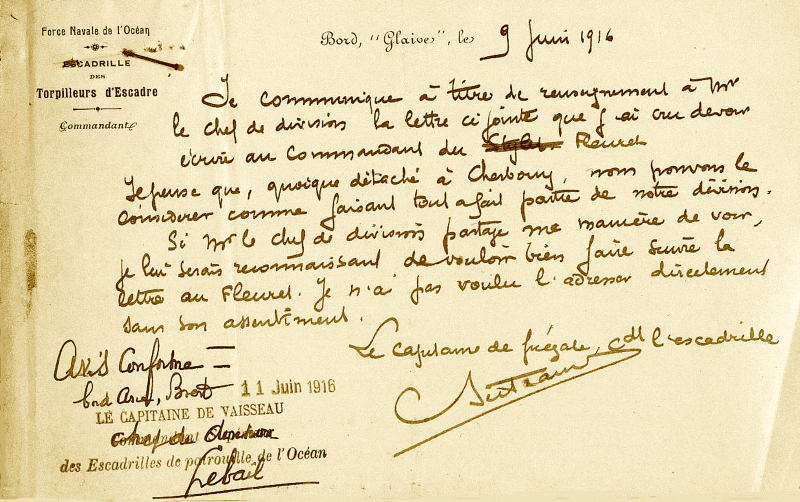 Force Navale de l'Océan
ESCADRILLE
DES
Torpilleurs d'Escadre
Commandant
Bord, "Glaive", le 9 Juin 1916
Je communique à titre de renseignement à Mr
le chef de division la lettre ci jointe que j'ai cru devoir
écrire au Commandant du Stylet Fleuret
Je pense que, quoique détaché à Cherbourg, nous pouvons le
considerer comme faisant tout à fait partie de notre division.
Si Mr le chef de division partage me manière de voir,
je lui serais reconnaissant de vouloir bien faire suivre la
lettre au Fleuret. Je n'ai pas voulu l'adresser directement
sans son assentiment.
Le Capitaine de frégate, cdt l'escadrille
Avis Conforme
bord Brest 11 Juin 1916
LE CAPITAINE DE VAISSEAU
chef de division
des Escadrilles de patrouille de l'Océan
Lebail